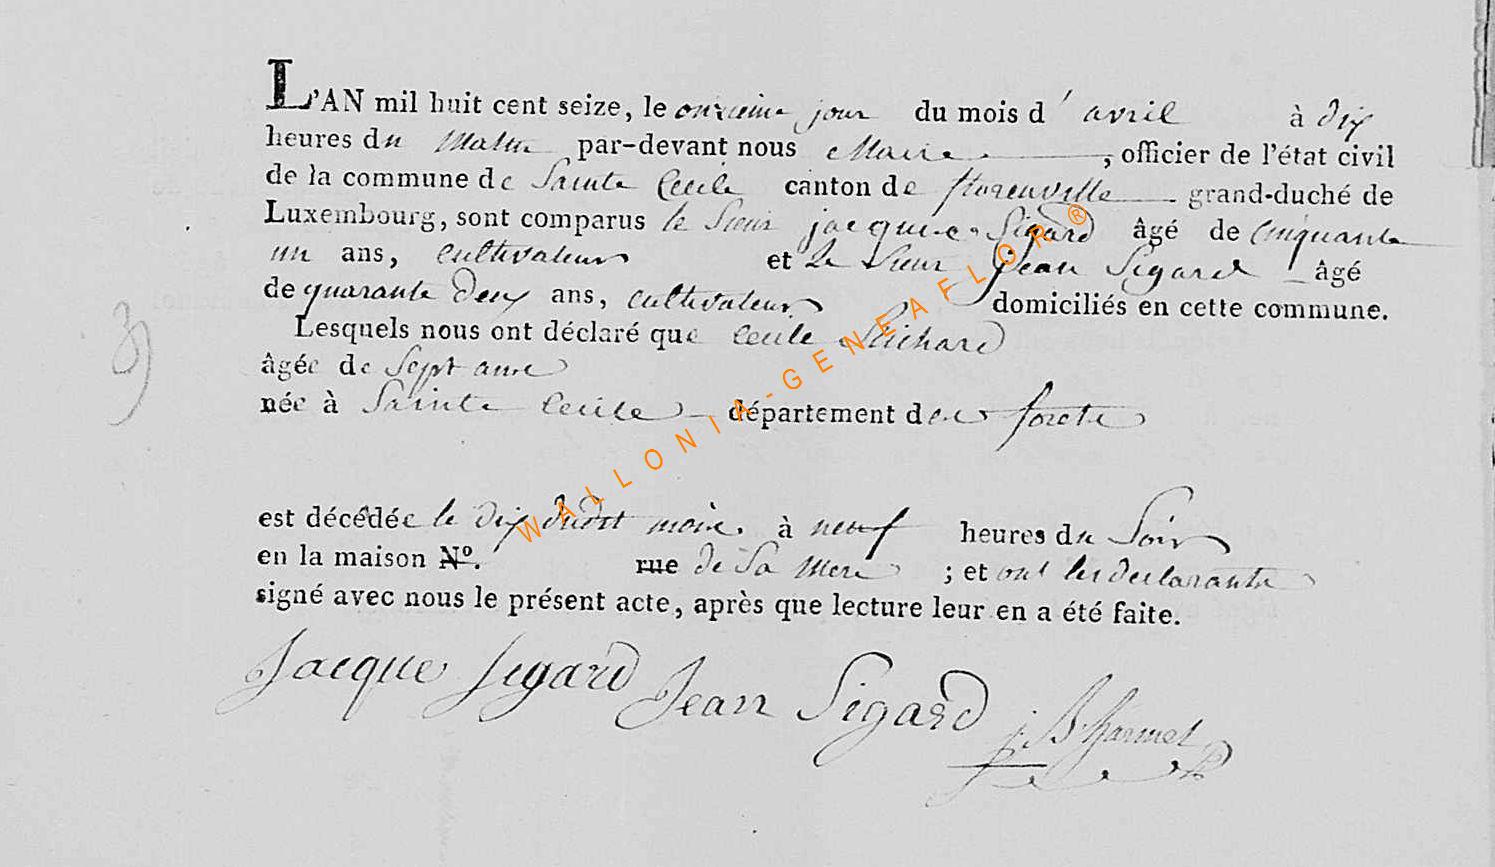 L'AN mil huit cent seize, le onzieme jour du mois d'avril à dix
heures du Matin par-devant nous Maire, officier de l'état civil
de la commune de Sainte Cecile canton de florenville grand-duché de
Luxembourg, sont comparus le Sieur jacque Sigard âgé de cinquante
un ans, cultivateur et le Sieur Jean Sigard âgé
de quarante deux ans, cultivateur domiciliés en cette commune.
Lesquels nous ont déclaré que Cecile Richard
âgée de Sept ans
née à Sainte Cecile département des forets
3)
est décédée le dix dudit mois. à neuf heures du Soir
en la maison N°. rue de Sa mere ; et ont les declarants
signé avec nous le présent acte, après que lecture leur en a été faite.
Jacque Sigard Jean Sigard
j. B. harmel
WALLONIA-GENEAFLOR®